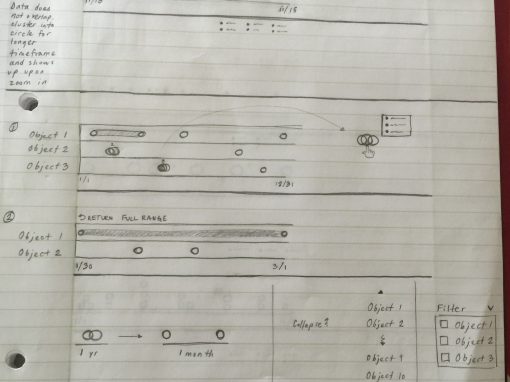 11/15
Data does
not overlap,
cluster into
circle for
longer
timeframe
and shows
up upon
zoom in
①
Object 1
Object 2
Object 3
1/1
12/31
②
RETURN FULL RANGE
Object 1
Object 2
9/30
3/1
1 yr
1 month
Collapse?
Object 1
Object 2
Object 9
Object 10
Filter V
Object 1
Object 2
Object 3